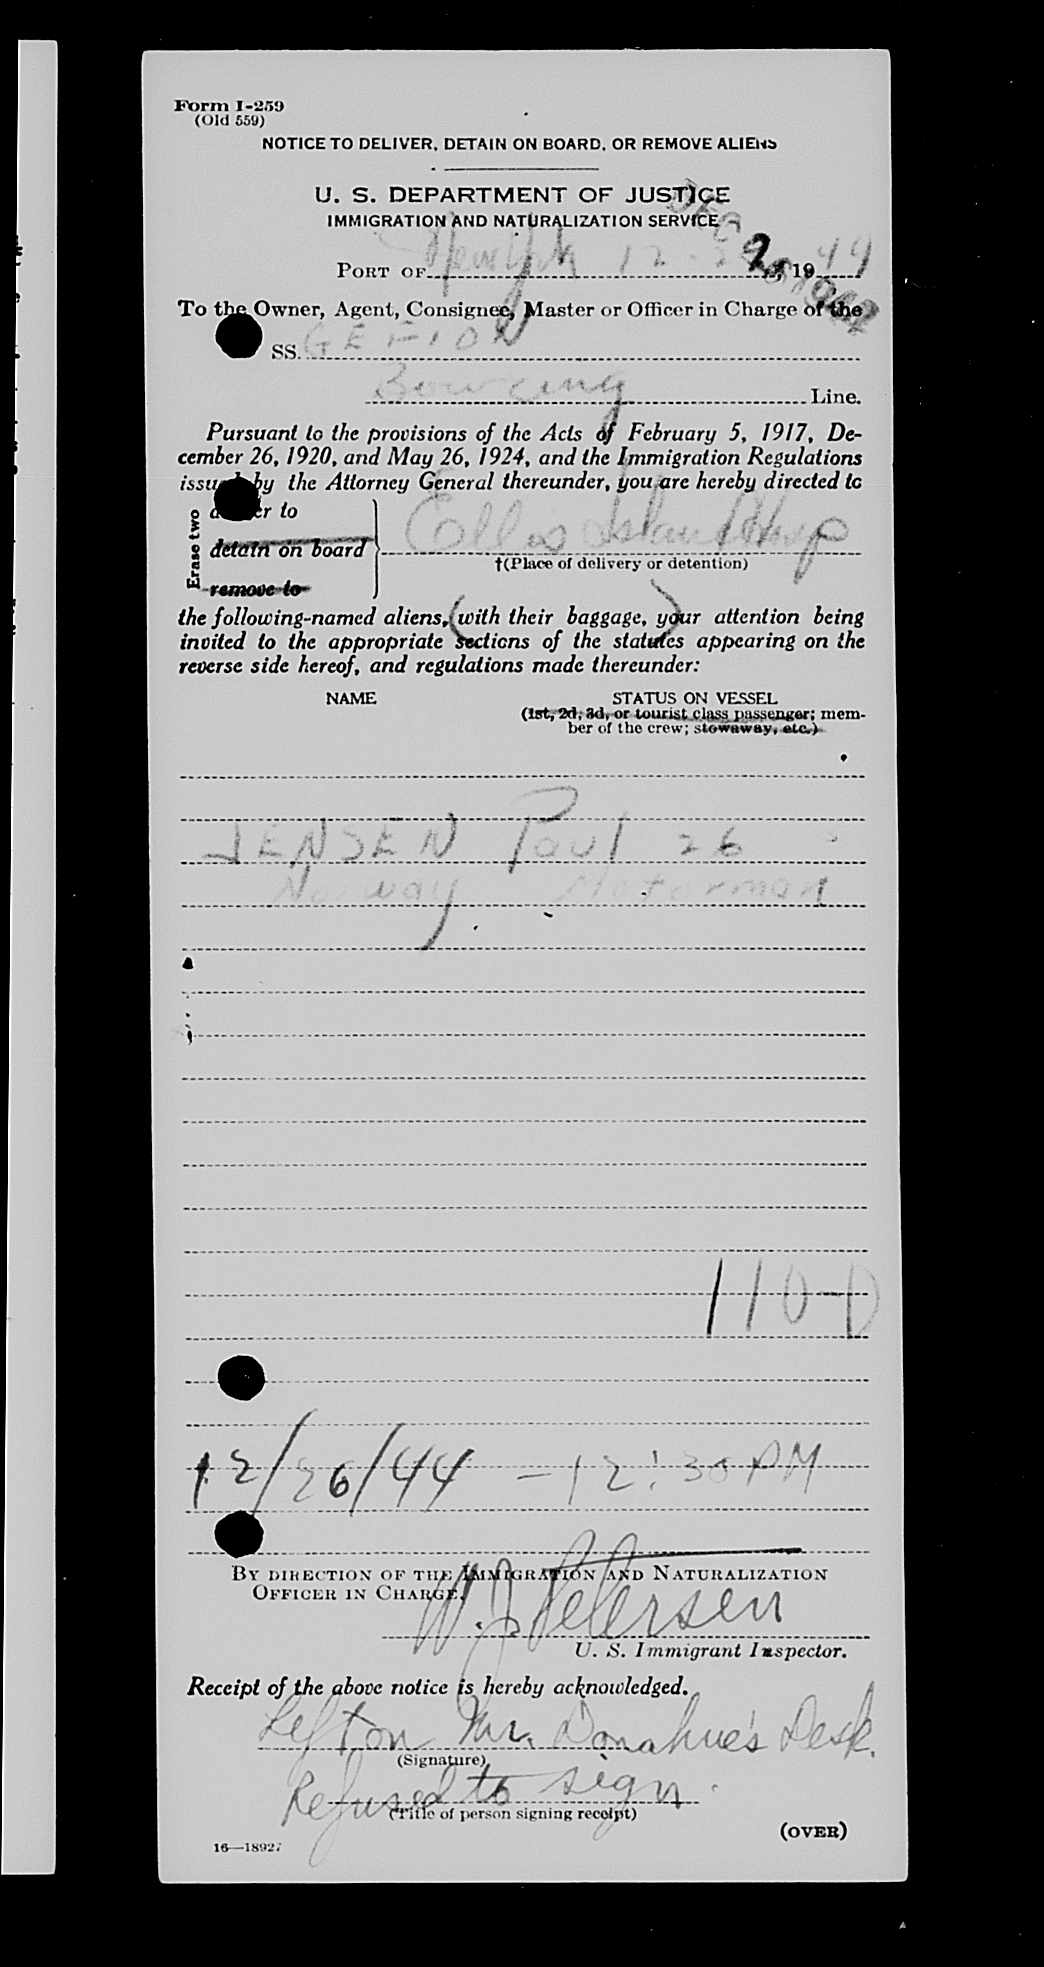 Form I-259
(Old 559)
NOTICE TO DELIVER, DETAIN ON BOARD, OR REMOVE ALIENS
U. S. DEPARTMENT OF JUSTICE
IMMIGRATION AND NATURALIZATION SERVICE
DEC
PORT OF New York 12 - 19 44
To the Owner, Agent, Consignee, Master or Officer in Charge of the
SS. GEFION
Line.
Pursuant to the provisions of the Acts of February 5, 1917, De-
cember 26, 1920, and May 26, 1924, and the Immigration Regulations
issued by the Attorney General thereunder, you are hereby directed to
Erase two
deliver to
detain on board
remove to
Ellis Island Hosp
†(Place of delivery or detention)
the following-named aliens, (with their baggage, ) your attention being
invited to the appropriate sections of the statutes appearing on the
reverse side hereof, and regulations made thereunder:
NAME
STATUS ON VESSEL
(1st, 2d, 3d, or tourist class passenger; mem-
ber of the crew; stowaway, etc.)
JENSEN Paul 26
Norway Motorman
110-D
12/26/44 - 12:30 PM
BY DIRECTION OF THE IMMIGRATION AND NATURALIZATION
OFFICER IN CHARGE.
W. J. Petersen
U. S. Immigrant Inspector.
Receipt of the above notice is hereby acknowledged.
Left on Mr. Donahue's Desk.
(Signature)
Refused to sign.
(Title of person signing receipt)
(OVER)
16—18927